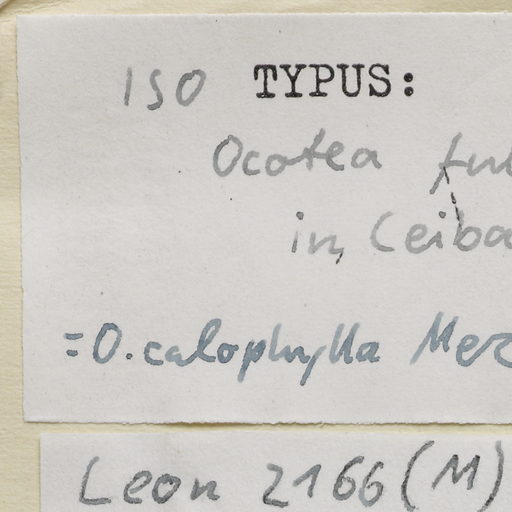 ISO TYPUS:
Ocotea ful
in Ceiba
=O. calophylla Mez
Leon 2166 (M)